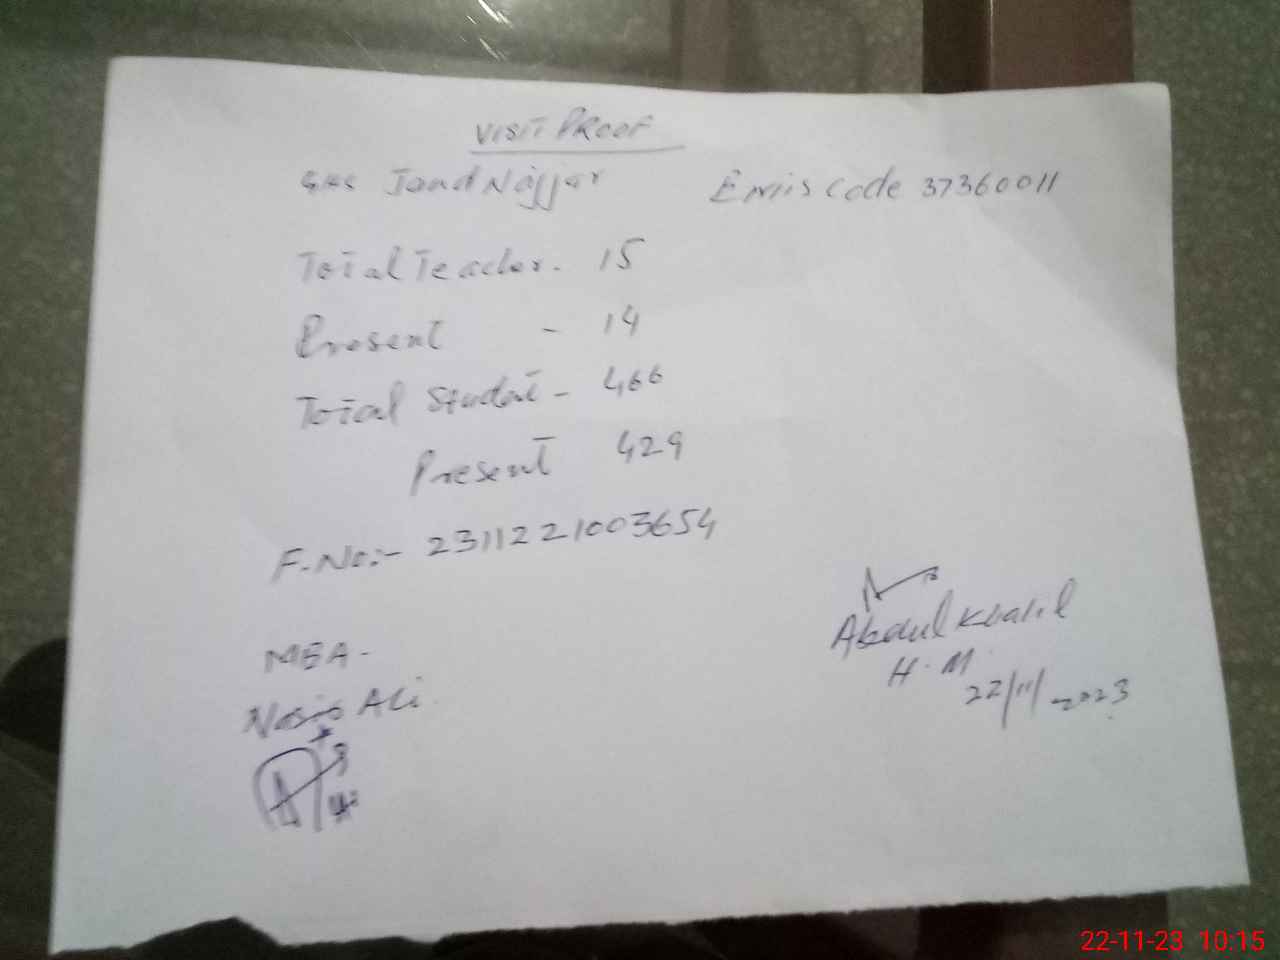 VISIT PROOF
GHS Jand Najjar Emis Code 37360011
Total Teacher. 15
Present - 14
Total Student - 466
Present 429
F.No:- 2311221003654
MEA-
Abdul Khalil
H.M
22/11/2023
Ali
22-11-23 10:15